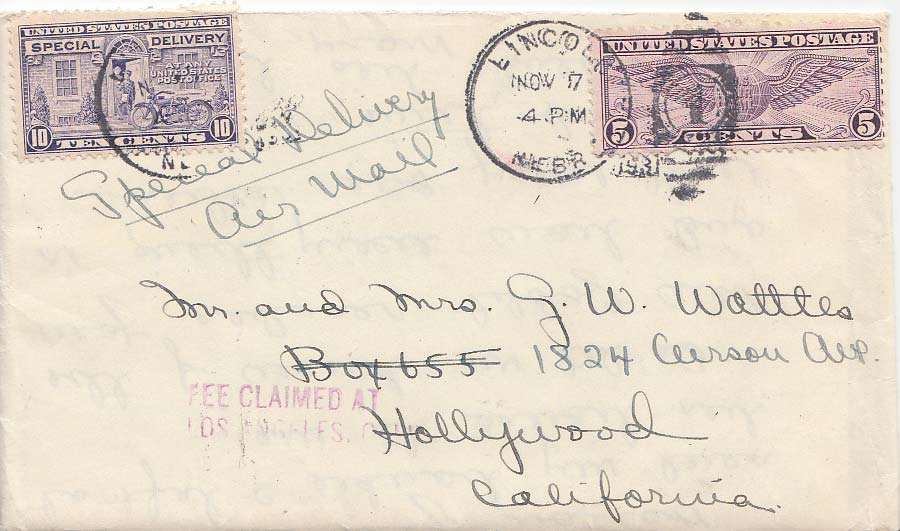 UNITED STATES POSTAGE
SPECIAL DELIVERY
AT ANY
UNITED STATES
POST OFFICE
10 10
TEN CENTS
LINCOL
NOV 17
4 PM
NEBR.
1931
UNITED STATES POSTAGE
1
5 CENTS 5
Special Delivery
Air Mail
Mr. and Mrs. G. W. Wattles
Box 655 1824 Curson Ave.
FEE CLAIMED AT
LOS ANGELES,
Hollywood
California.